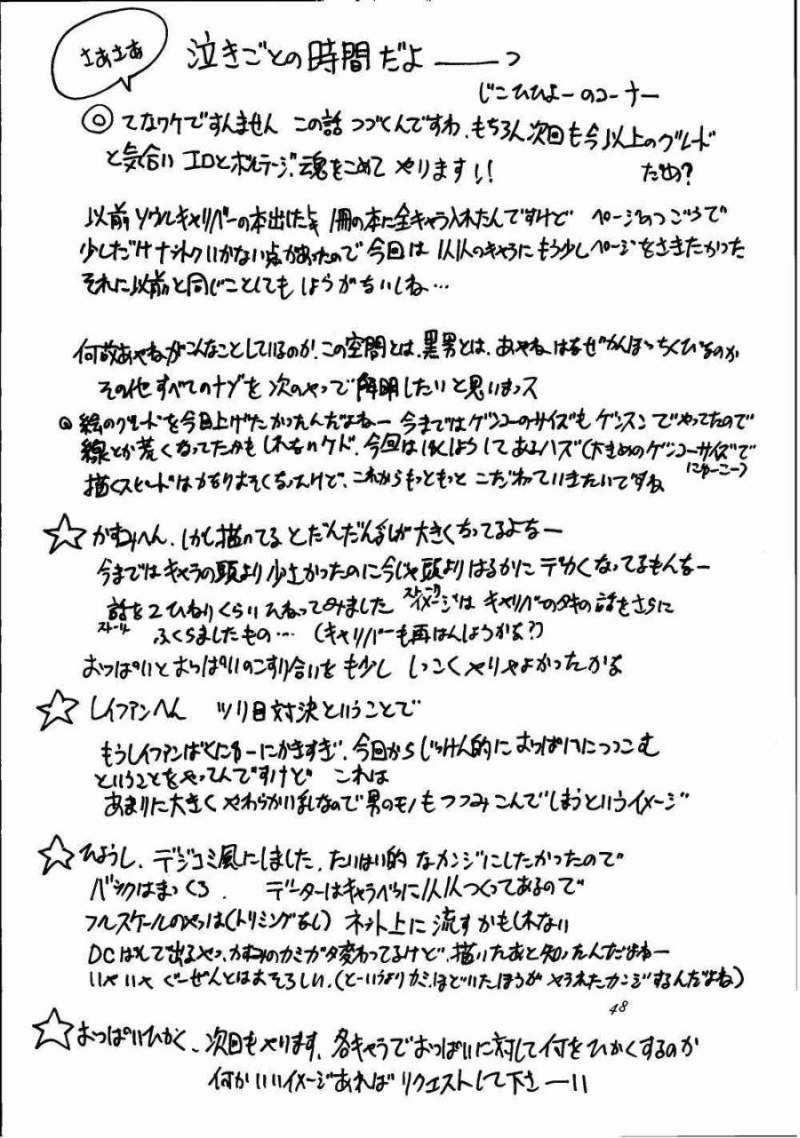 さぁさぁ
泣きごとの時間だよ――っ
じこひひょーのコーナー
◎てなワケですんません この話 つづくんですわ、もちろん次回も今以上のグレード
と気合い エロとボルテージ、魂をこめて やります!! だめ?
以前ソウルキャリバーの本出したとき 1冊の本に全キャラ入れたんですけど ページのつごうで
少しだけナットクいかない点があったので今回は 1人1人のキャラにもう少しページをさきたかった
それに以前と同じことしても しょうがないしね…
何故あやねがこんなことしているのか、この空間とは、黒男とは、あやねはなぜ
その他すべてのナゾを次のやつで解明したいと思いまっス
◎絵のグレードを今回上げたかったんだよねー 今まではゲンコーのサイズもゲンスンでやってたので
線とか荒くなってたかもしれないケド、今回は してあるハズ(大きめのゲンコーサイズで
にゅーこー)
描くスピードはかなりおそくなったけど、これからもっともっと こだわっていきたいですね
☆かすみへん、しかし描いてる とだんだん乳が大きくなってるよなー
今まではキャラの頭より小さかったのに今じゃ頭よりはるかに デカくなってるもんなー
話を2ひねりくらいひねってみました イメージは キャリバーのタキの話をさらに
ストーリー
ふくらましたもの… (キャリバーも再はんしようかな?)
おっぱいとおっぱいのこすり合いをも少し しつこくやりゃよかったかな
☆レイファンへん ツリ目対決ということで
もうレイファンばくにゅーにかきすぎ、今回からじっけん的におっぱいにつっこむ
ということをやってんですけど これは
あまりに大きく やわらかい乳なので男のモノもつつみこんでしまうというイメージ
☆ひょうし、デジコミ風にしました、たいはい的なカンジにしたかったので
バックはまっくろ、 データーはキャラべつに1人1人つくってあるので
フルスケールのやつは(トリミングなし) ネット上に流すかもしれない
DCはんで出るやつ、かすみのカミガタ変わってるけど、描いたあと知ったんだよねー
いやいや ぐーぜんとはおそろしい、(とーいうよりカミ、ほどいたほうが やられたカンジするんだよね)
48
☆おっぱいひかく、次回もやります、各キャラでおっぱいに対して何をひかくするのか
何かいいイメージあれば リクエストして下さーいい